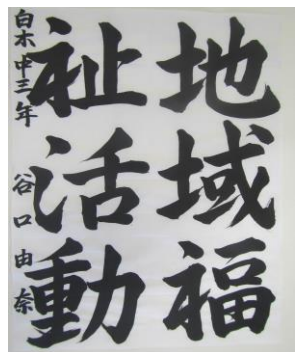 地域福
祉活動
白木中三年 谷口由奈